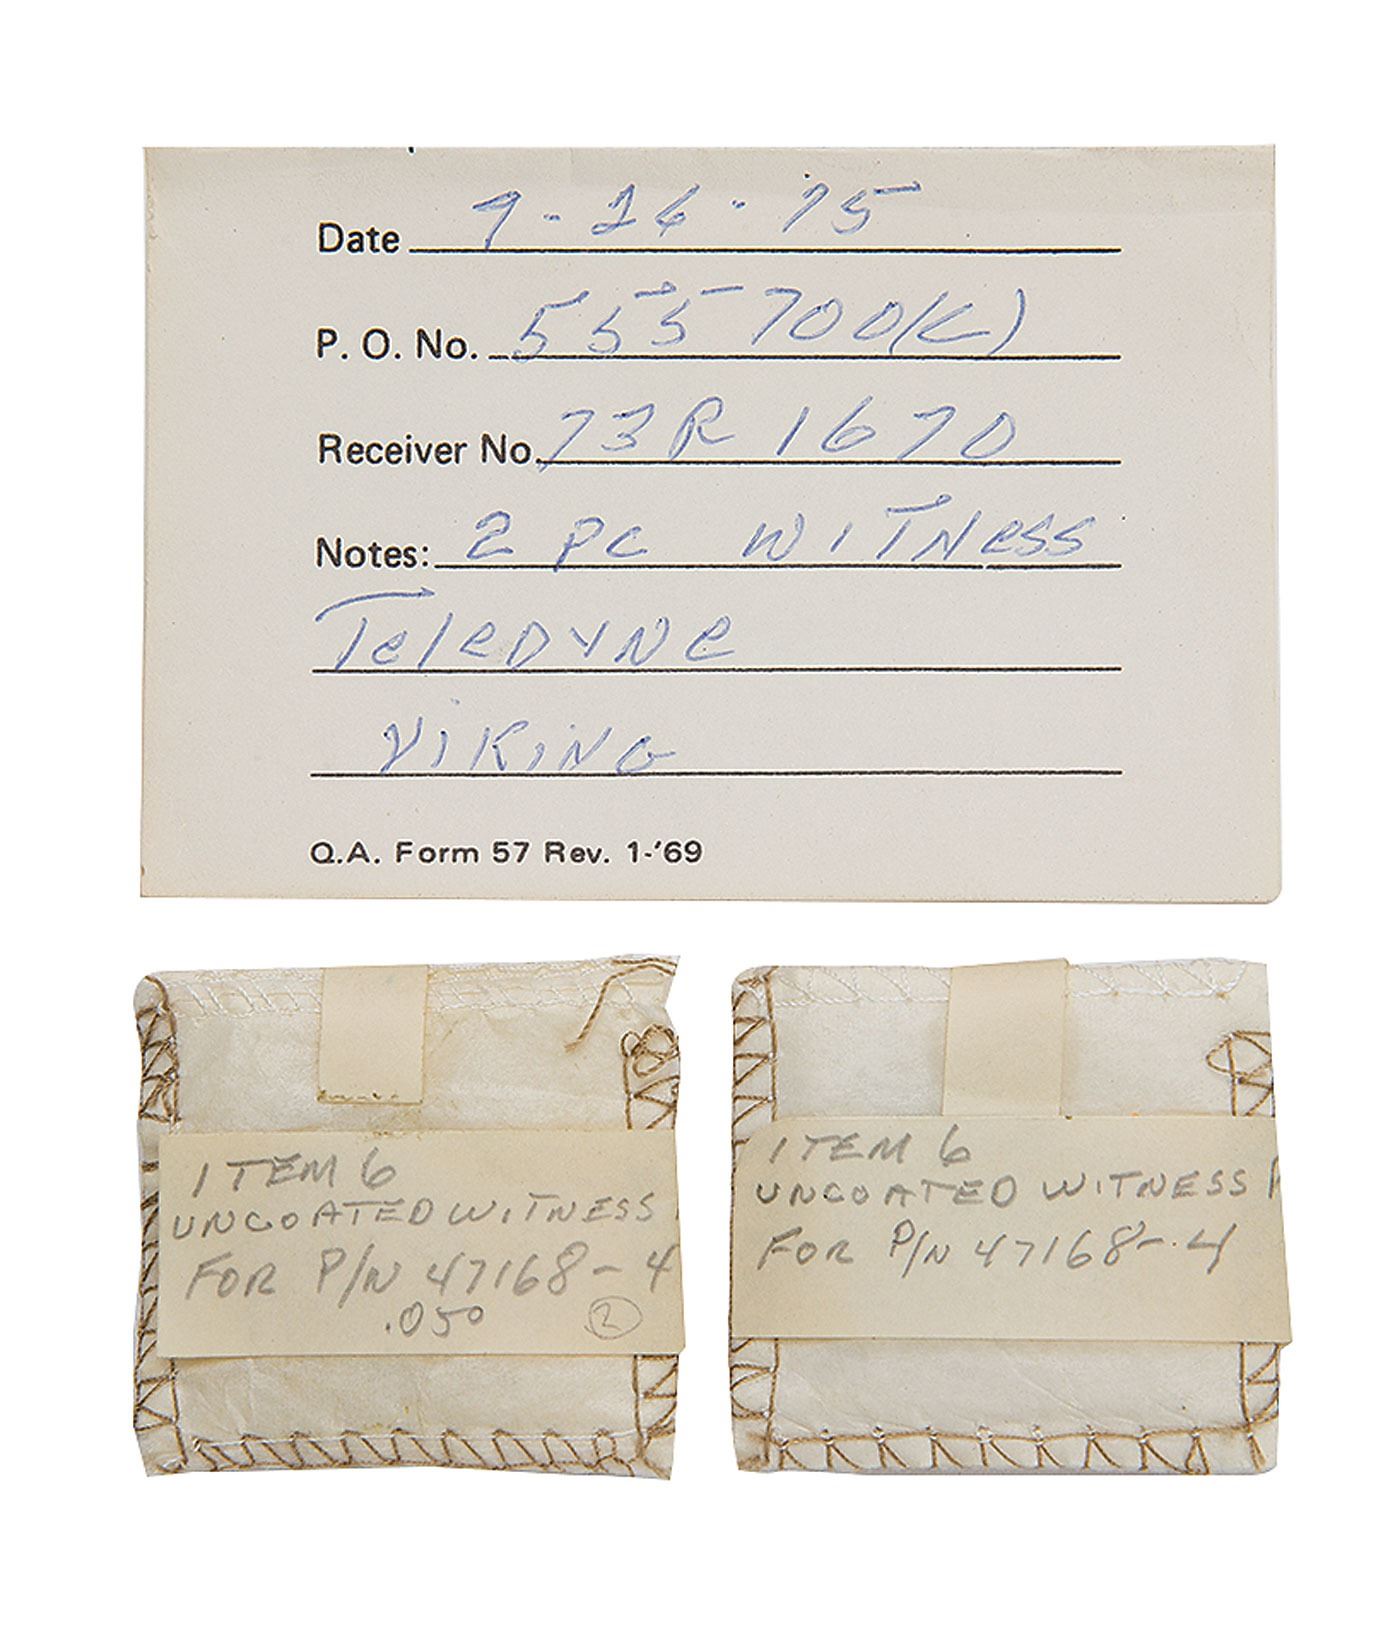 Date 9-26-75
P. O. No. 555700(C)
Receiver No. 73R 1670
Notes: 2 PC WITNESS
TeleDYNe
VIKING
Q.A. Form 57 Rev. 1-'69
ITEM 6
UNCOATED WITNESS
FOR P/N 47168-4
.050 2
ITEM 6
UNCOATED WITNESS
FOR P/N 47168-4